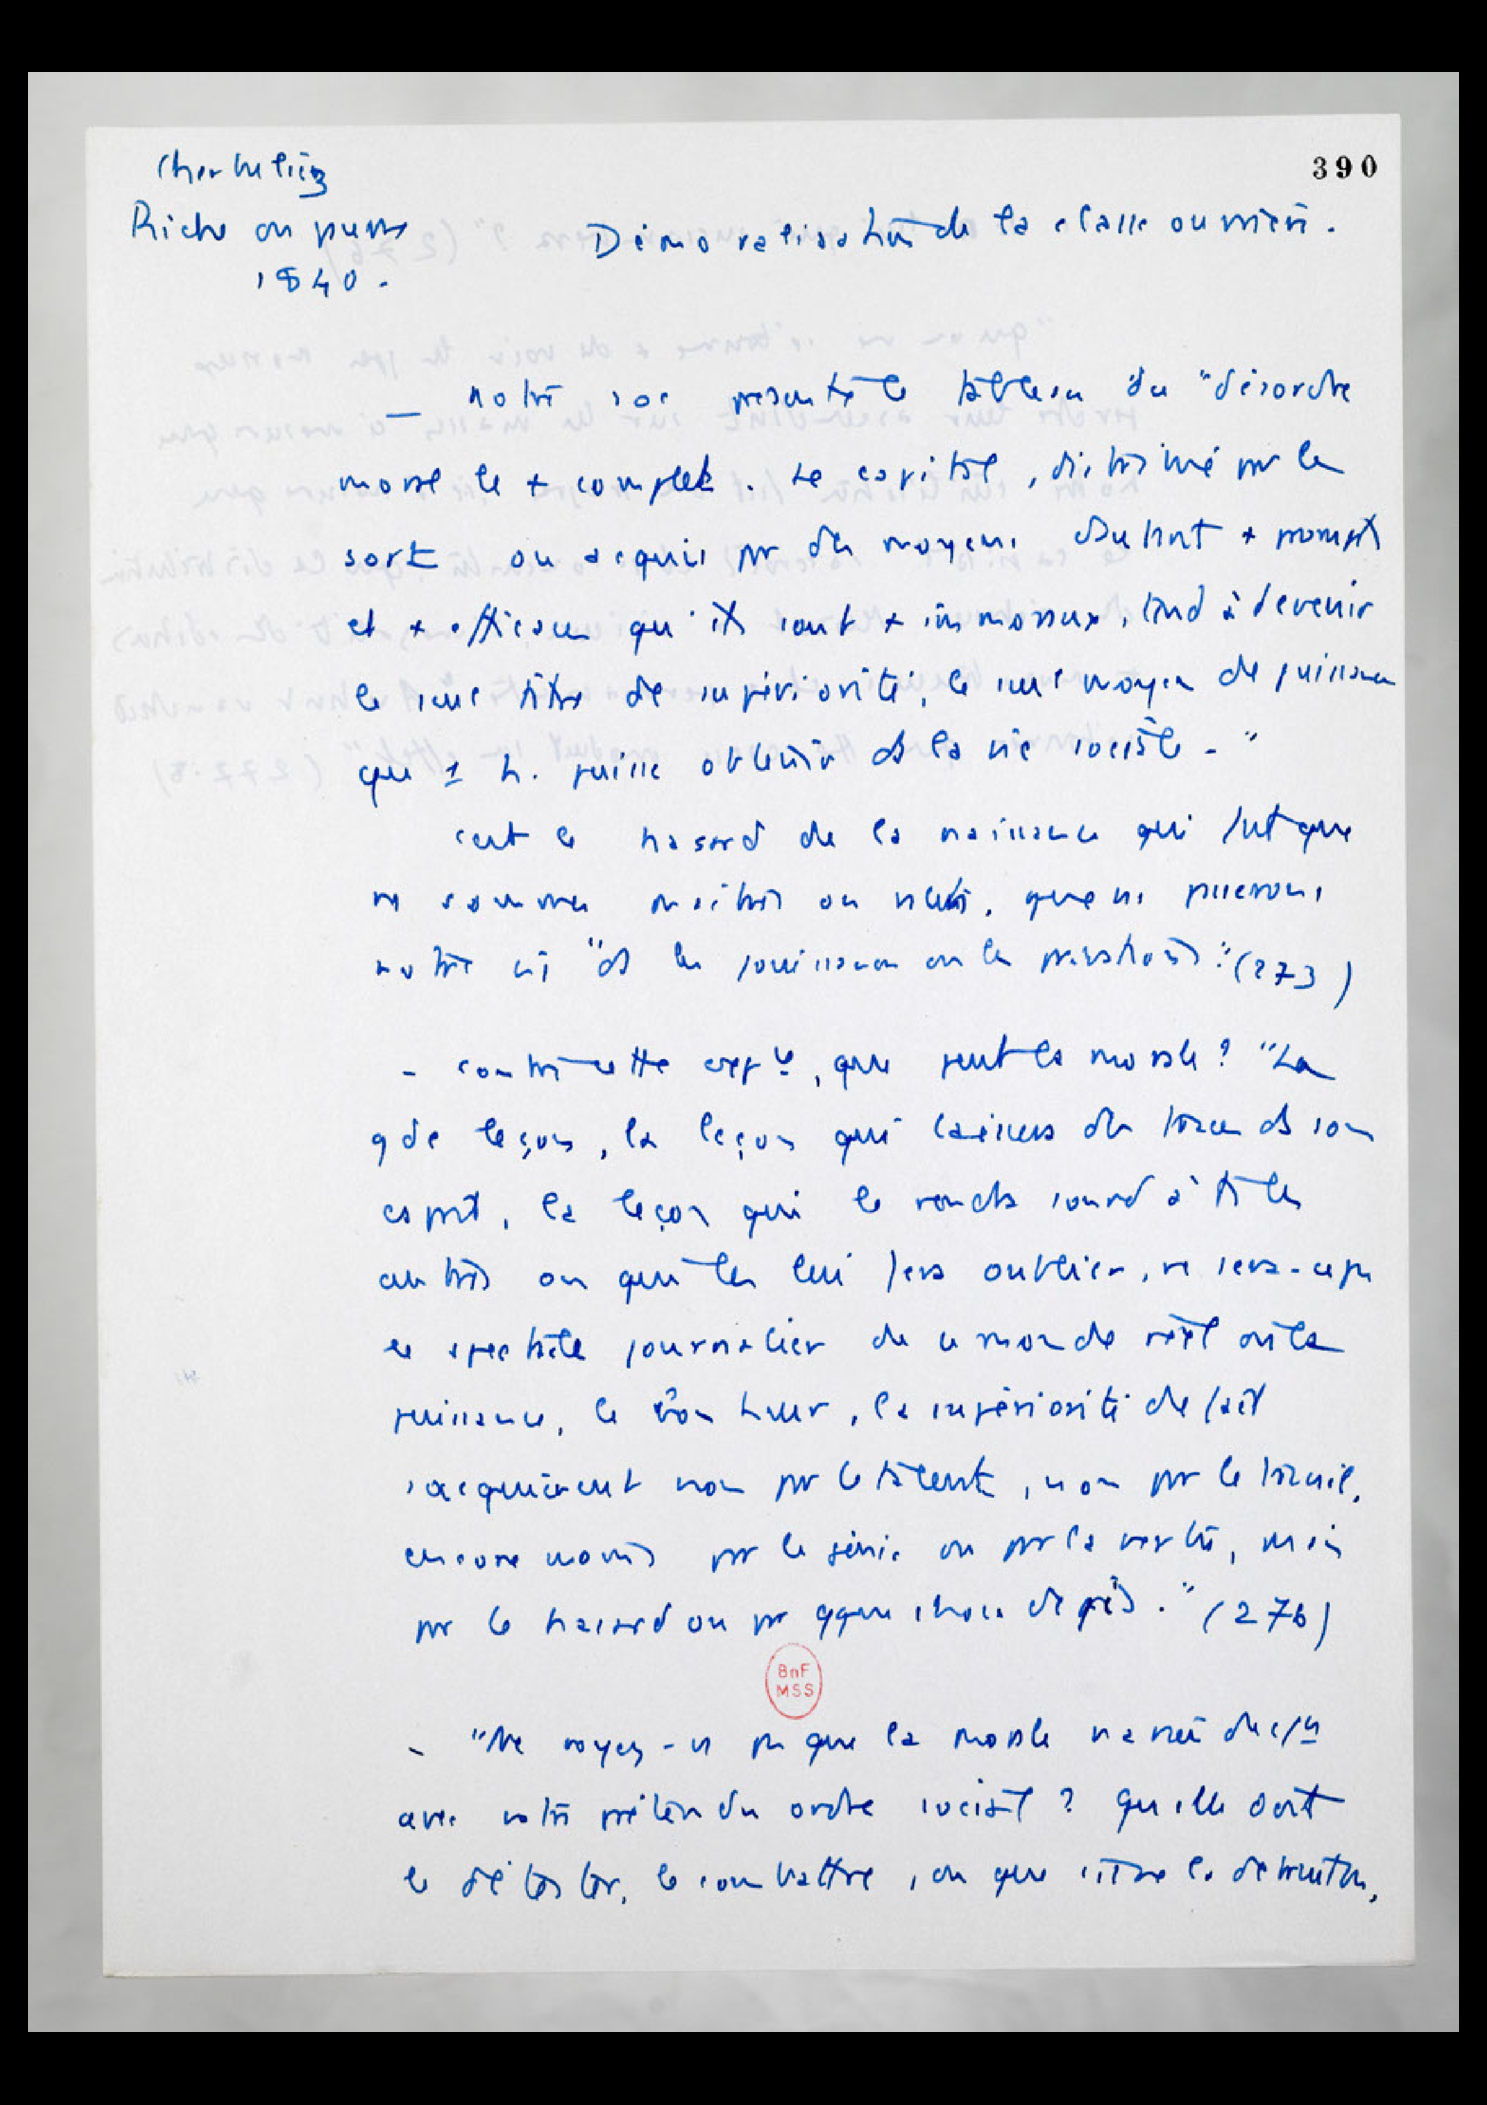 Cherbuliez
390
Riche ou pauvre
Démoralisation de la classe ouvrière.
1840.
— notre soc présente le tableau du "désordre
moral le + complet. Le capital, distribué par le
sort ou acquis par des moyens d'autant + prompts
et + efficaces qu'ils sont + immoraux, tend à devenir
le seul titre de supériorité, le seul moyen de puissance
que 1 h. puisse obtenir ds la vie sociale. "
c'est le hasard de la naissance qui fait que
ns sommes maîtres ou valets, que ns passerons
notre vie "ds les jouissances ou les privations." (273)
- contre cette, que peut la morale ? "La
gde leçon, la leçon qui laissera des traces ds son
esprit, la leçon qui le rendra sourd à ttes les
autres ou qui les lui fera oublier, ne sera-ce pas
le spectacle journalier de ce monde réel où la
puissance, le bonheur, la supériorité de fait
s'acquièrent non par le talent, non par le travail,
encore moins par le génie ou par la vertu, mais
par le hasard ou par qque chose de pis." (276)
BnF
MSS
- "Ne voyez-vs pas que la morale n'a rien de
avec votre prétendu ordre social ? qu'elle doit
le détester, le combattre, ou que la détruit,